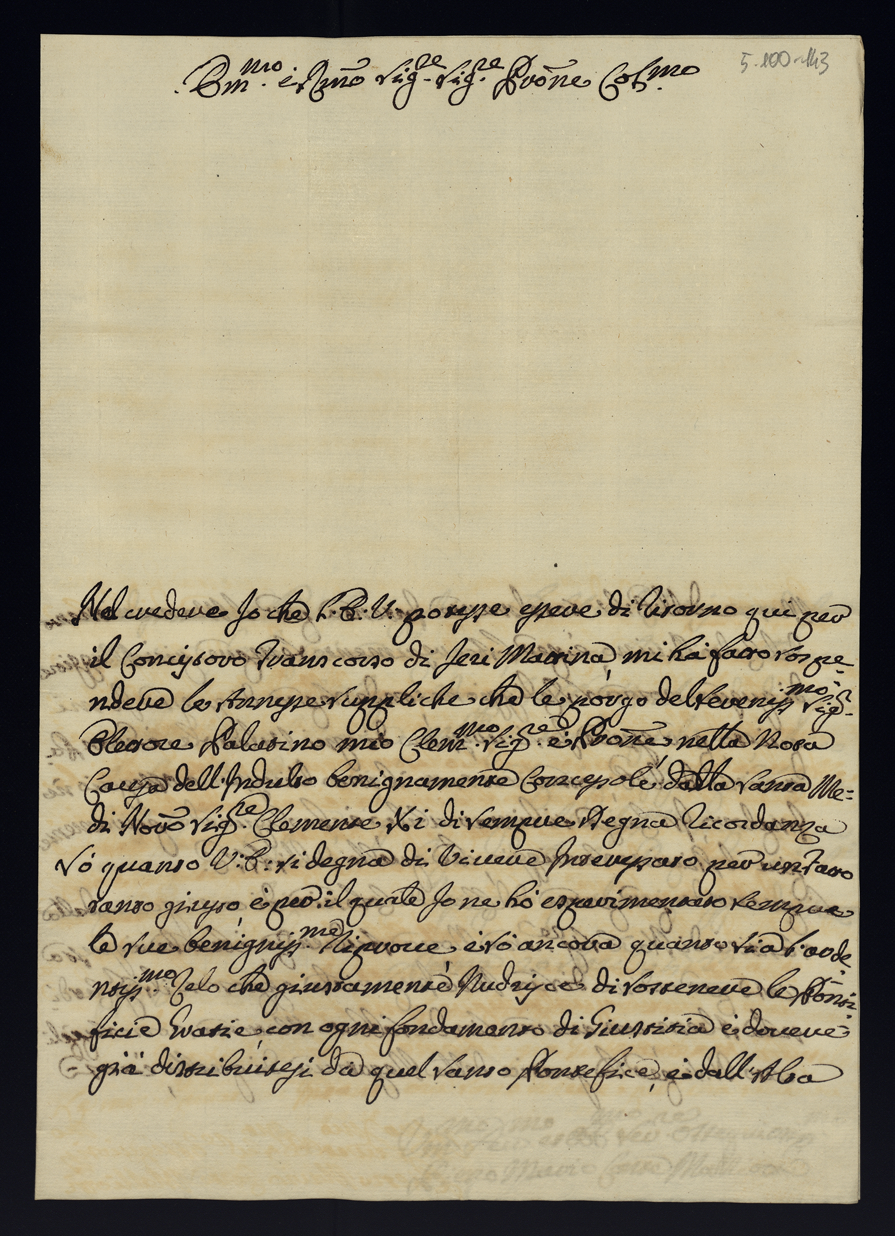 Em.mo e Rmo Sig.re Sig.re Prone Col.mo
5-100-143
Nel credere Jo che l'E. V. potesse essere di ritorno qui per
il Concistoro trascorso di Jeri Mattina, mi hà fatto sospe-
ndere le Annesse suppliche che le porgo del Sereniss.mo Sig.r
Elettore Palatino mio Clem.mo Sig.re e Prone nella Nota
Causa dell'Indulto benignamente Concessole dalla Santa Me=
di Nostro Sig.re Clemente Xi di sempre Degna Ricordanza
Sò quanto V. E. si degna di Vivere Interessato per un'fatto
tanto giusto e per il quale Jo ne hò esperimentato sempre
le sue benigniss.me riprove e sò ancora quanto sia l'arde
ntiss.mo Zelo che giustamente Nudrisce di sostenere le Ponti-
ficie Grazie con ogni fondamento di Giustizia e dovere
già distribuitesi da quel Santo Pontefice, e dall'Alta